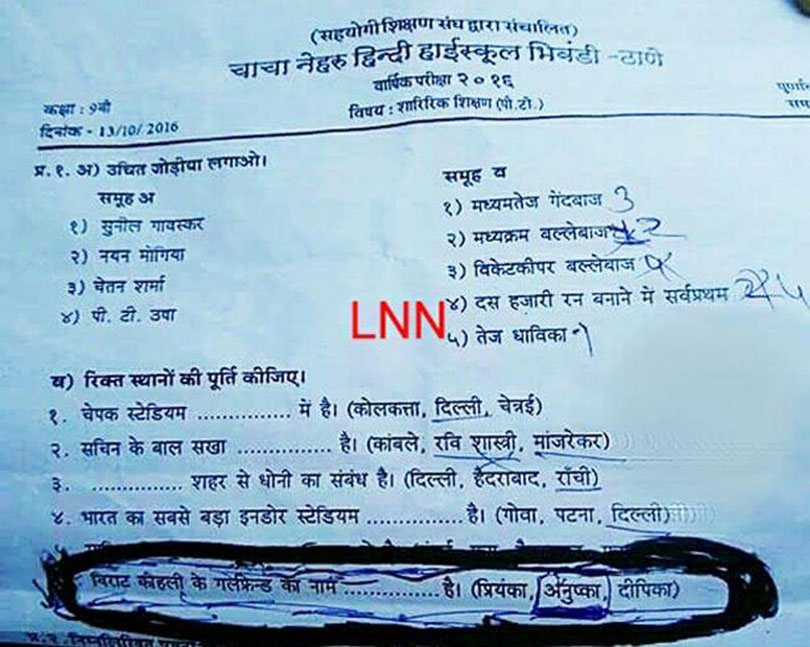 (सहयोगी शिक्षण संघ द्वारा संचालित)
चाचा नेहरु हिन्दी हाईस्कूल भिवंडी -ठाणे
वार्षिक परीक्षा २०१६
कक्षा : 9वी
विषय : शारिरिक शिक्षण (पी.टी.)
दिनांक - 13/10/ 2016
प्र.१. अ) उचित जोड़ीया लगाओ।
समूह अ
१) सुनील गावस्कर
२) नयन मोंगिया
३) चेतन शर्मा
४) पी. टी. उषा
समूह ब
१) मध्यमतेज गेंदबाज 3
२) मध्यक्रम बल्लेबाज 2
३) विकेटकीपर बल्लेबाज
४) दस हजारी रन बनाने में सर्वप्रथम
५) तेज धाविका 1
LNN
ब) रिक्त स्थानों की पूर्ति कीजिए।
१. चेपक स्टेडियम ............... में है। (कोलकत्ता, दिल्ली, चेन्नई)
२. सचिन के बाल सखा ............... है। (कांबले, रवि शास्त्री, मांजरेकर)
३. ............... शहर से धोनी का संबंध है। (दिल्ली, हैदराबाद, राँची)
४. भारत का सबसे बड़ा इनडोर स्टेडियम ............... है। (गोवा, पटना, दिल्ली)
विराट कोहली के गर्लफ्रेन्ड का नाम ............... है। (प्रियंका, अनुष्का, दीपिका)